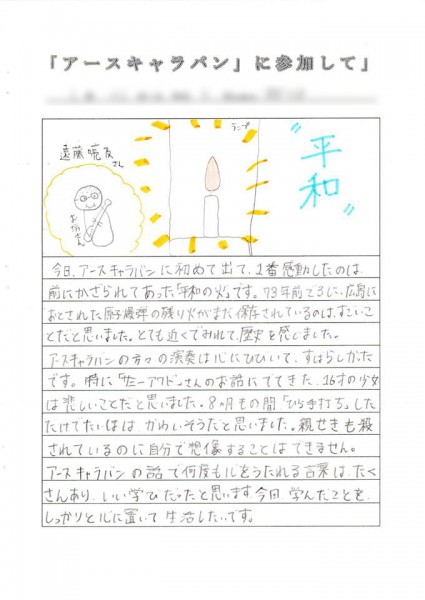 「アースキャラバン」に参加して」
ランプ
"平和"
遠藤 喨及さん
おかさん
今日、アースキャラバンに初めて出て、1番感動したのは
前にかざられてあった「平和の火」です。73年前で3に、広島に
おとされた原子爆弾の残り火がまだ保存されているのは、すごいこ
とだと思いました。とても近くでみれて、歴史を感じました。
アースキャラバンの方々の演奏は心にひびいて、すばらしかった
です。特に「サミー・アワド」さんのお話にでてきた、16才の少女
は悲しいことだと思いました。8ヵ月もの間「ひら手打ち」した
だけでたいほは かわいそうだと思いました。親せきも殺
されているのに自分で想像することはできません。
アースキャラバンの話で何度も心をうたれる言葉は、たく
さんあり、いい学びだったと思います 今日 学んだことを、
しっかりと心に置いて 生活したいです。